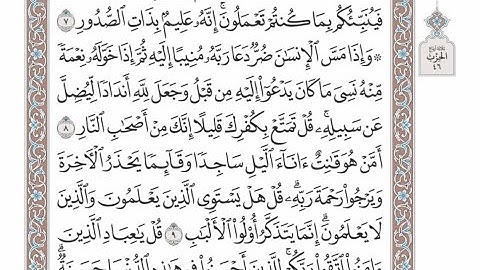 فَيُنَبِّئُكُم بِمَا كُنتُمْ تَعْمَلُونَ ۚ إِنَّهُۥ عَلِيمٌۢ بِذَاتِ ٱلصُّدُورِ ٧
۞ وَإِذَا مَسَّ ٱلْإِنسَٰنَ ضُرٌّ دَعَا رَبَّهُۥ مُنِيبًا إِلَيْهِ ثُمَّ إِذَا خَوَّلَهُۥ نِعْمَةً
مِّنْهُ نَسِىَ مَا كَانَ يَدْعُوٓا۟ إِلَيْهِ مِن قَبْلُ وَجَعَلَ لِلَّهِ أَندَادًا لِّيُضِلَّ
عَن سَبِيلِهِۦ ۚ قُلْ تَمَتَّعْ بِكُفْرِكَ قَلِيلًا ۖ إِنَّكَ مِنْ أَصْحَٰبِ ٱلنَّارِ ٨
أَمَّنْ هُوَ قَٰنِتٌ ءَانَآءَ ٱلَّيْلِ سَاجِدًا وَقَآئِمًا يَحْذَرُ ٱلْءَاخِرَةَ
وَيَرْجُوا۟ رَحْمَةَ رَبِّهِۦ ۗ قُلْ هَلْ يَسْتَوِى ٱلَّذِينَ يَعْلَمُونَ وَٱلَّذِينَ
لَا يَعْلَمُونَ ۗ إِنَّمَا يَتَذَكَّرُ أُو۟لُوا۟ ٱلْأَلْبَٰبِ ٩ قُلْ يَٰعِبَادِ ٱلَّذِينَ
ءَامَنُوا۟ ٱتَّقُوا۟ رَبَّكُمْ ۚ لِلَّذِينَ أَحْسَنُوا۟ فِى هَٰذِهِ ٱلدُّنْيَا حَسَنَةٌ ۗ
الحِزْب
٤٦